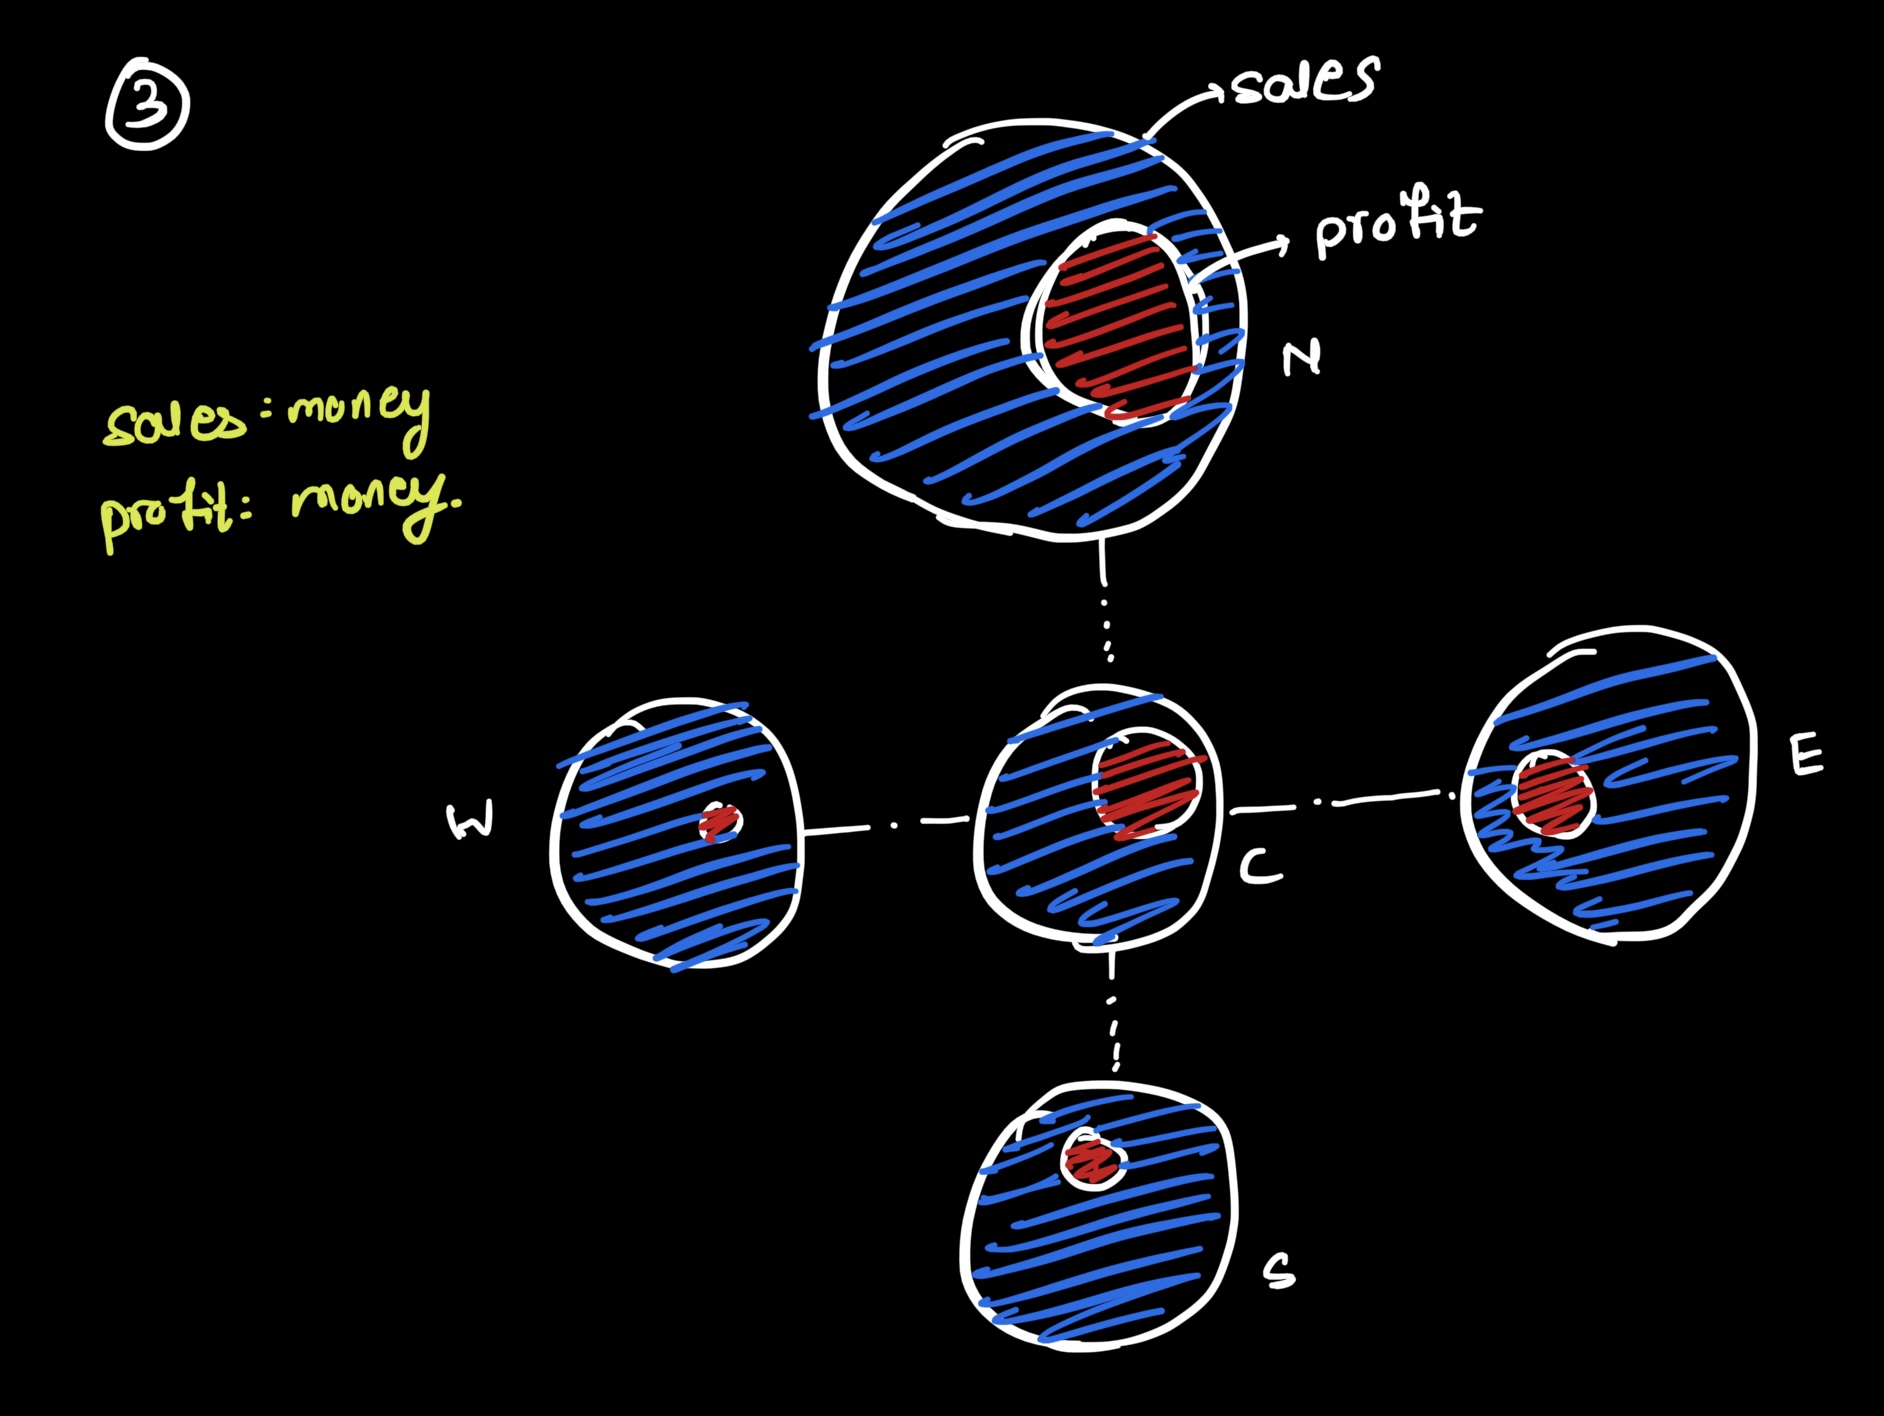 3
sales
profit
N
sales: money
profit: money.
W
C
E
S